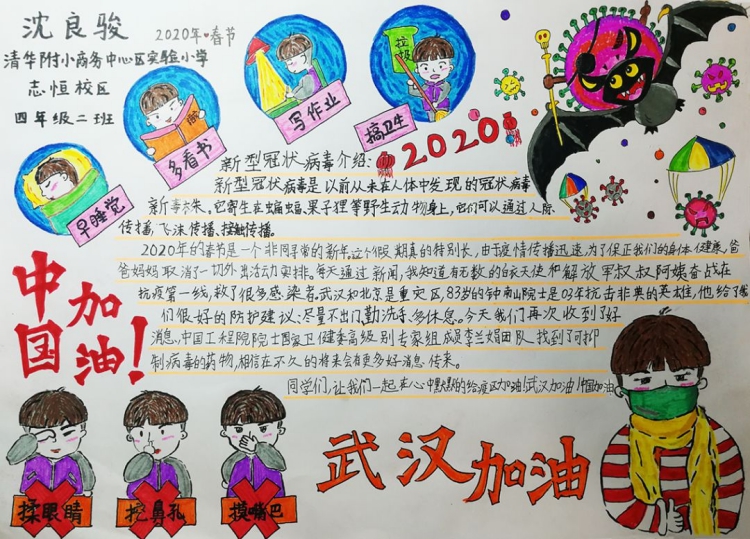 沈良骏
2020年♥春节
清华附小商务中心区实验小学
志恒校区
四年级二班
早睡觉
多看书
写作业
垃圾
搞卫生
2020
新型冠状病毒介绍:
新型冠状病毒是以前从未在人体中发现的冠状病毒
新毒株。它寄生在蝙蝠、果子狸等野生动物身上,它们可以通过人际
传播,飞沫传播、接触传播。
2020年的春节是一个非同寻常的新年。这个假期真的特别长,由于疫情传播迅速,为了保证我们的身体健康,爸
爸妈妈取消了一切外出活动安排。每天通过新闻,我知道有无数的白衣天使和解放军叔叔阿姨奋战在
抗疫第一线,救了很多感染者。武汉和北京是重灾区,83岁的钟南山院士是03年抗击非典的英雄,他给了我
们很好的防护建议:尽量不出门,勤洗手、多休息。今天我们再次收到了好
消息,中国工程院院士国家卫健委高级别专家组成员李兰娟团队找到了可抑
制病毒的药物,相信在不久的将来会有更多好消息传来。
同学们,让我们一起在心中默默的给疫区加油!武汉加油!中国加油
中国加油!
揉眼睛
挖鼻孔
摸嘴巴
武汉加油